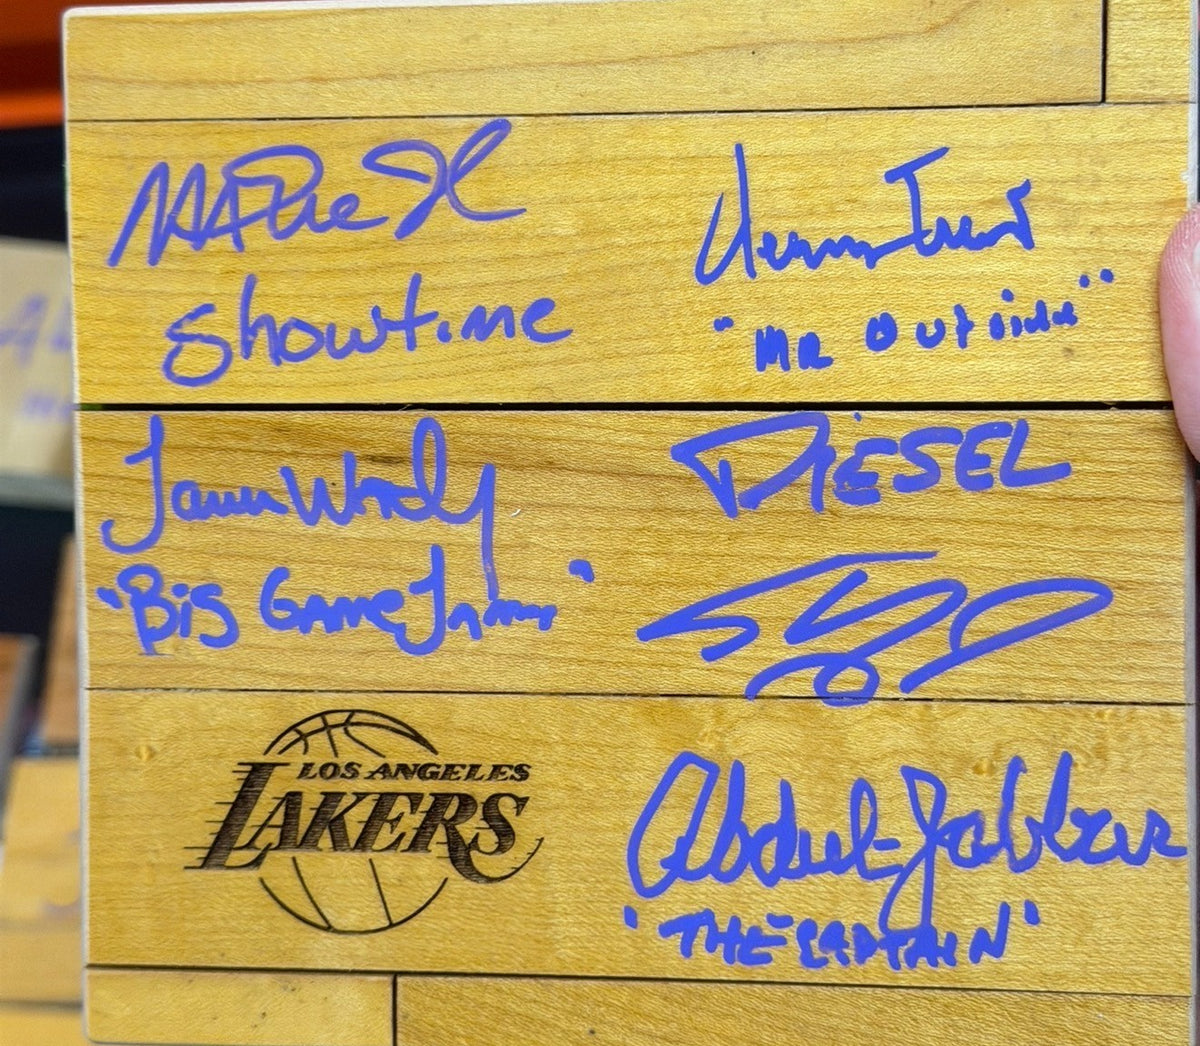 Showtime
"MR Outside"
James Worthy
"Big Game James"
DIESEL
LOS ANGELES
LAKERS
Abdul-Jabbar
"THE CAPTAIN"